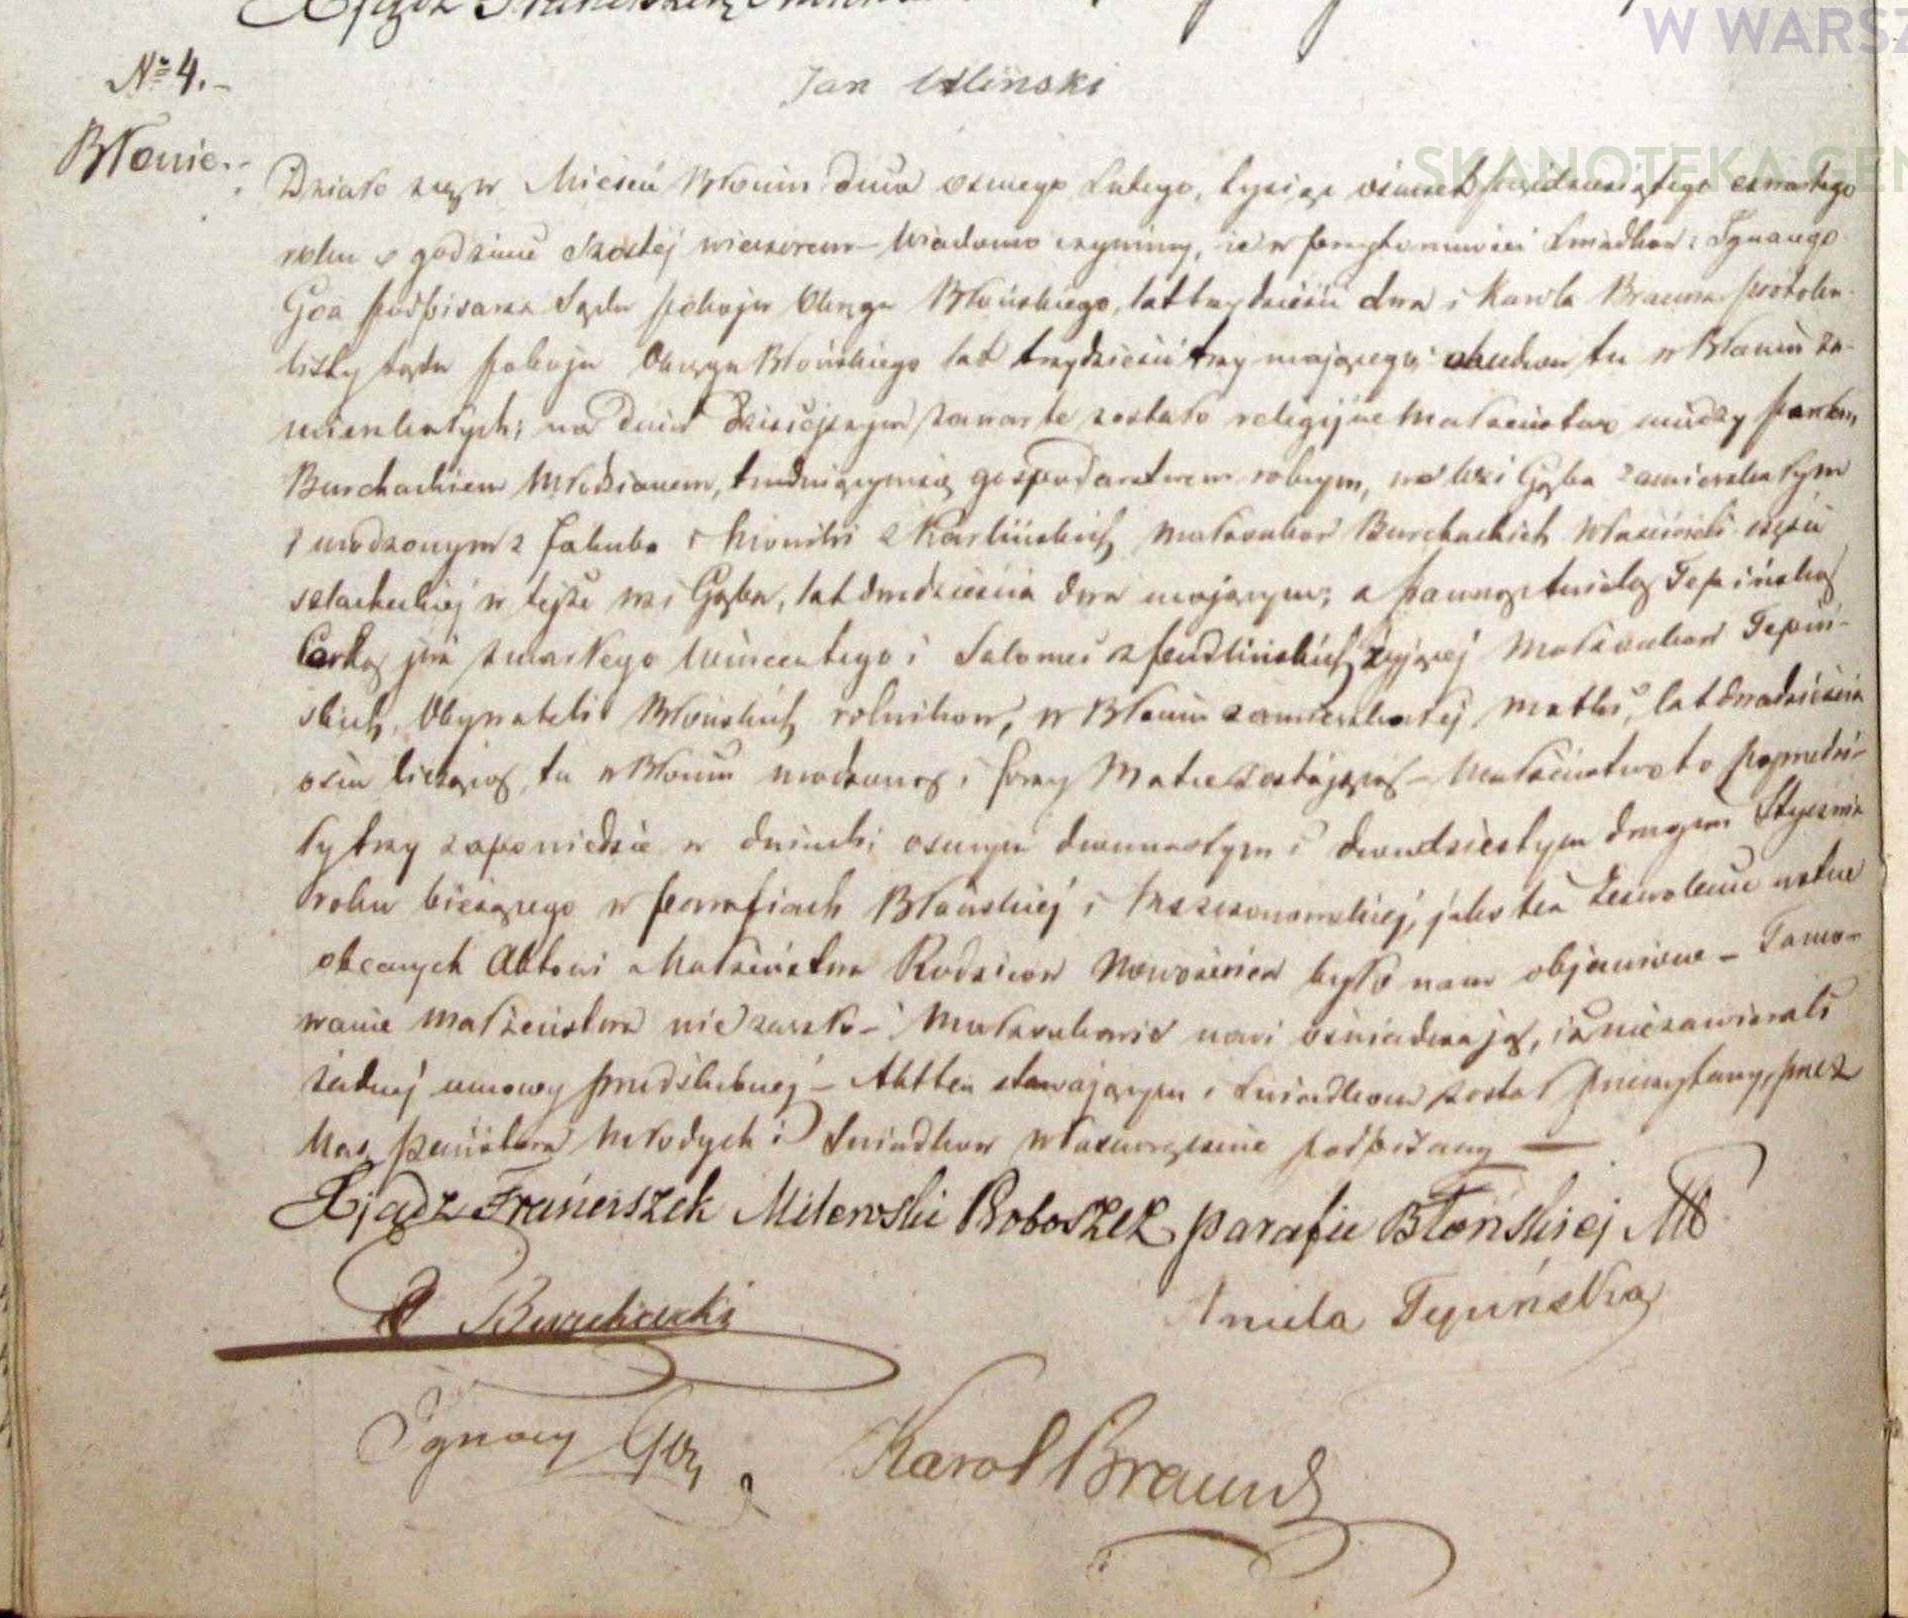 W WARSZ
Xiądz Franciszek
Jan Uliński
SKANOTEKA GEN
№ 4.-
Błonie.-
Działo się w Mieście Błoniu dnia osmego Lutego, tysiąc ośmset pięćdziesiątego czwartego
roku o godzinie szóstej wieczorem - Wiadomo czynimy, iż w przytomności Świadków: Ignacego
Goa podpisarza Sądu pokoju Okręgu Błońskiego, lat trzydzieści dwa i Karola Brauna protoku-
listy Sądu pokoju Okręgu Błońskiego lat trzydzieści trzy mającego, obudwu tu w Błoniu za-
mieszkałych; na dniu dzisiejszym zawarte zostało religijne małżeństwo między
Burchackim Młodzianem, trudniącym się gospodarstwem rolnym, we wsi Gąba zamieszkałym
i urodzonym z Jakuba i z Karlińskich małżonków Burchackich właścicieli części
szlacheckiej w tejże wsi Gąba, lat dwadzieścia dwa mającym; a panną Anielą Tepińską
Córką już zmarłego Wincentego i Salomei z żyjącej Małżonków Tepiń-
skich, Obywateli Błońskich rolników, w Błoniu zamieszkałej matki, lat dwadzieścia
ośm liczącą, tu w Błoniu urodzoną i przy Matce zostającą - Małżeństwo to poprzedzi-
ły trzy zapowiedzie w dniach; osmym i dwudziestym drugim Stycznia
roku bieżącego w parafiach Błońskiej i jako też zezwolenie ustne
obecnych Aktowi Małżeństwa Rodziców Nowożeńców było nam objawione - Tamo-
wanie małżeństwa nie zaszło - Małżonkowie nowi oświadczają, iż nie zawierali
żadnej umowy przedślubnej - Akt ten stawającym i Świadkom został przeczytany, przez
Nas, państwa Młodych i Świadków własnoręcznie podpisany —
Xiądz Franciszek Milewski Proboszcz parafii Błońskiej
Burchacki
Aniela Tepińska
Ignacy Goa
Karol Braun